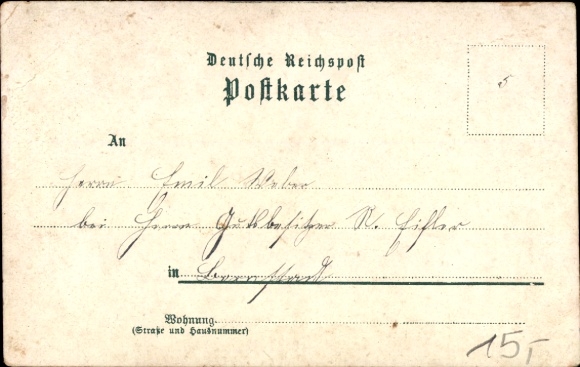 Deutsche Reichspost
Postkarte
5
An
Herrn Emil Weber
bei Herrn Gutsbesitzer R. Eifler
in Bernstadt
Wohnung
(Straße und Hausnummer)
15,-